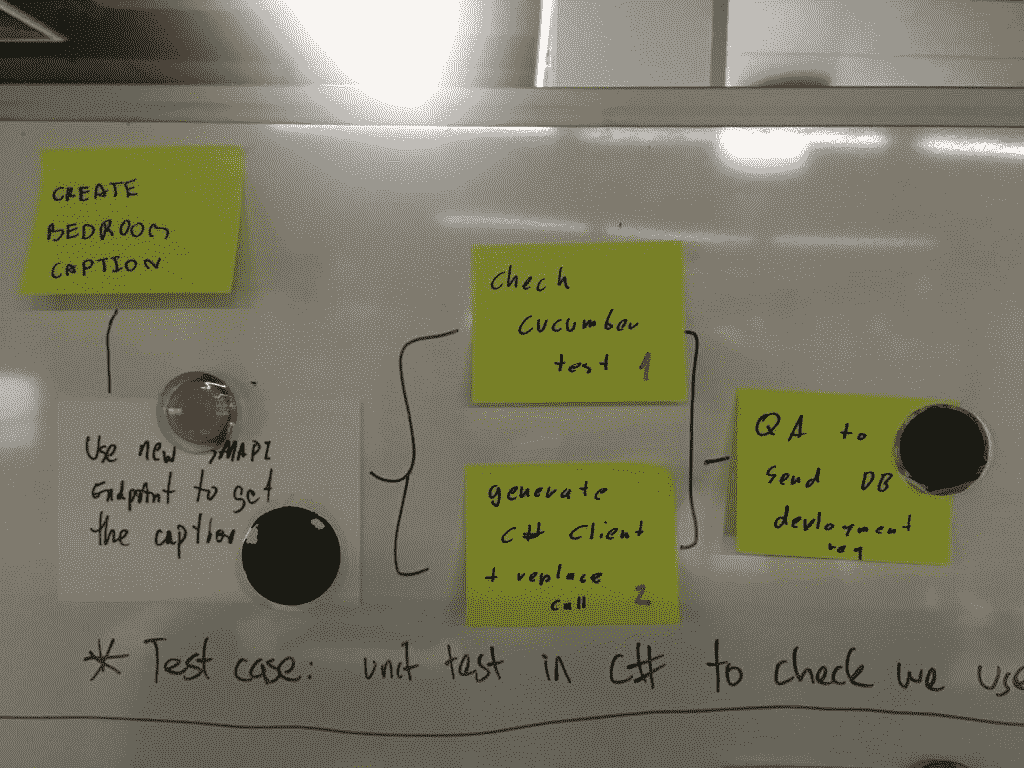 CREATE
BEDROOM
CAPTION
Use new SMAPI
Endpoint to get
the caption
check
cucumber
test 1
generate
C# Client
+ replace
call 2
QA to
Send DB
devloyment
req
* Test case: unit test in C# to check we use